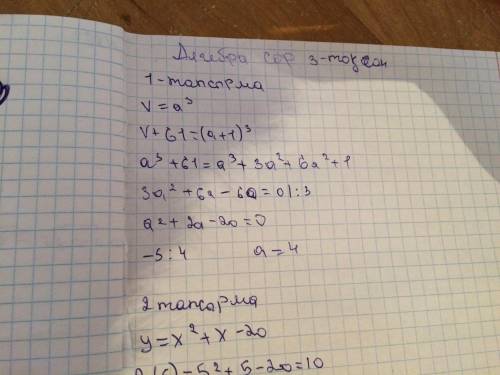 Алгебра сор 3-тоқсан
1-тапсырма
V=a³
V+61=(a+1)³
a³+61=a³+3a²+6a²+1
3a²+6a-60=0|:3
a²+2a-20=0
-5;4 a=4
2 тапсырма
y=x²+x-20
5²+5-20=10